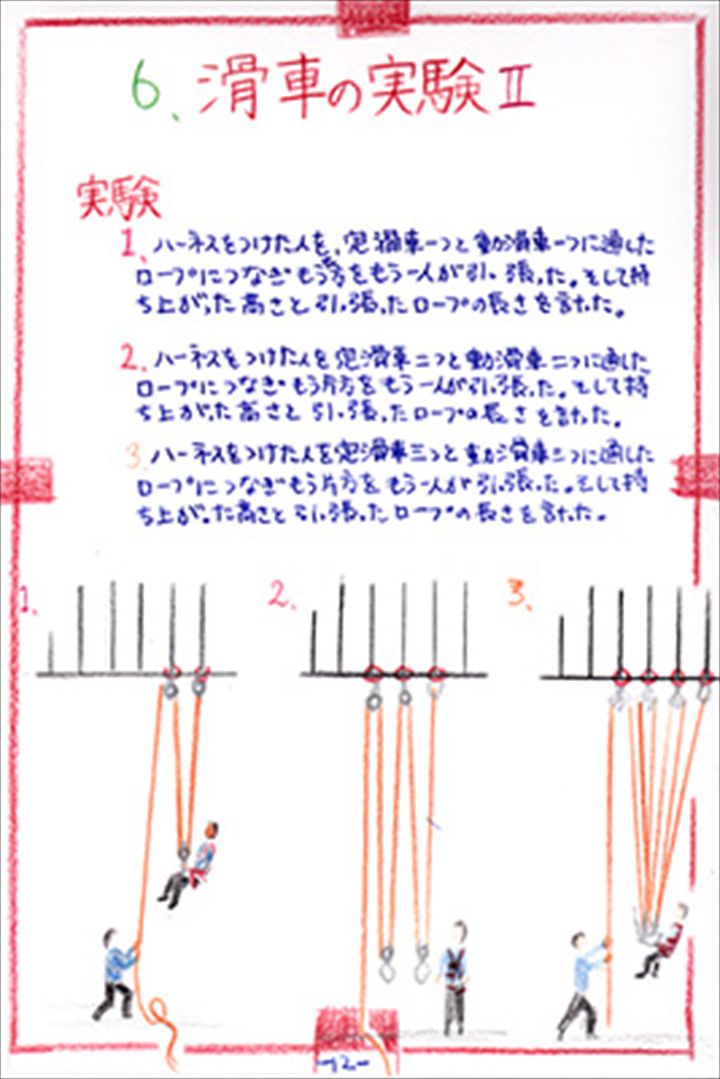 6、滑車の実験Ⅱ
実験
1. ハーネスをつけた人を、定滑車一つと動滑車一つに通した
ロープにつなぎもう方をもう一人が引っ張った。そして持
ち上がった高さと引っ張ったロープの長さを計った。
2. ハーネスをつけた人を定滑車二つと動滑車二つに通した
ロープにつなぎもう片方をもう一人が引っ張った。そして持
ち上がった高さと引っ張ったロープの長さを計った。
3. ハーネスをつけた人を定滑車三つと動滑車三つに通した
ロープにつなぎもう片方をもう一人が引っ張った。そして持
ち上がった高さと引っ張ったロープの長さを計った。
1. 2. 3.
-12-